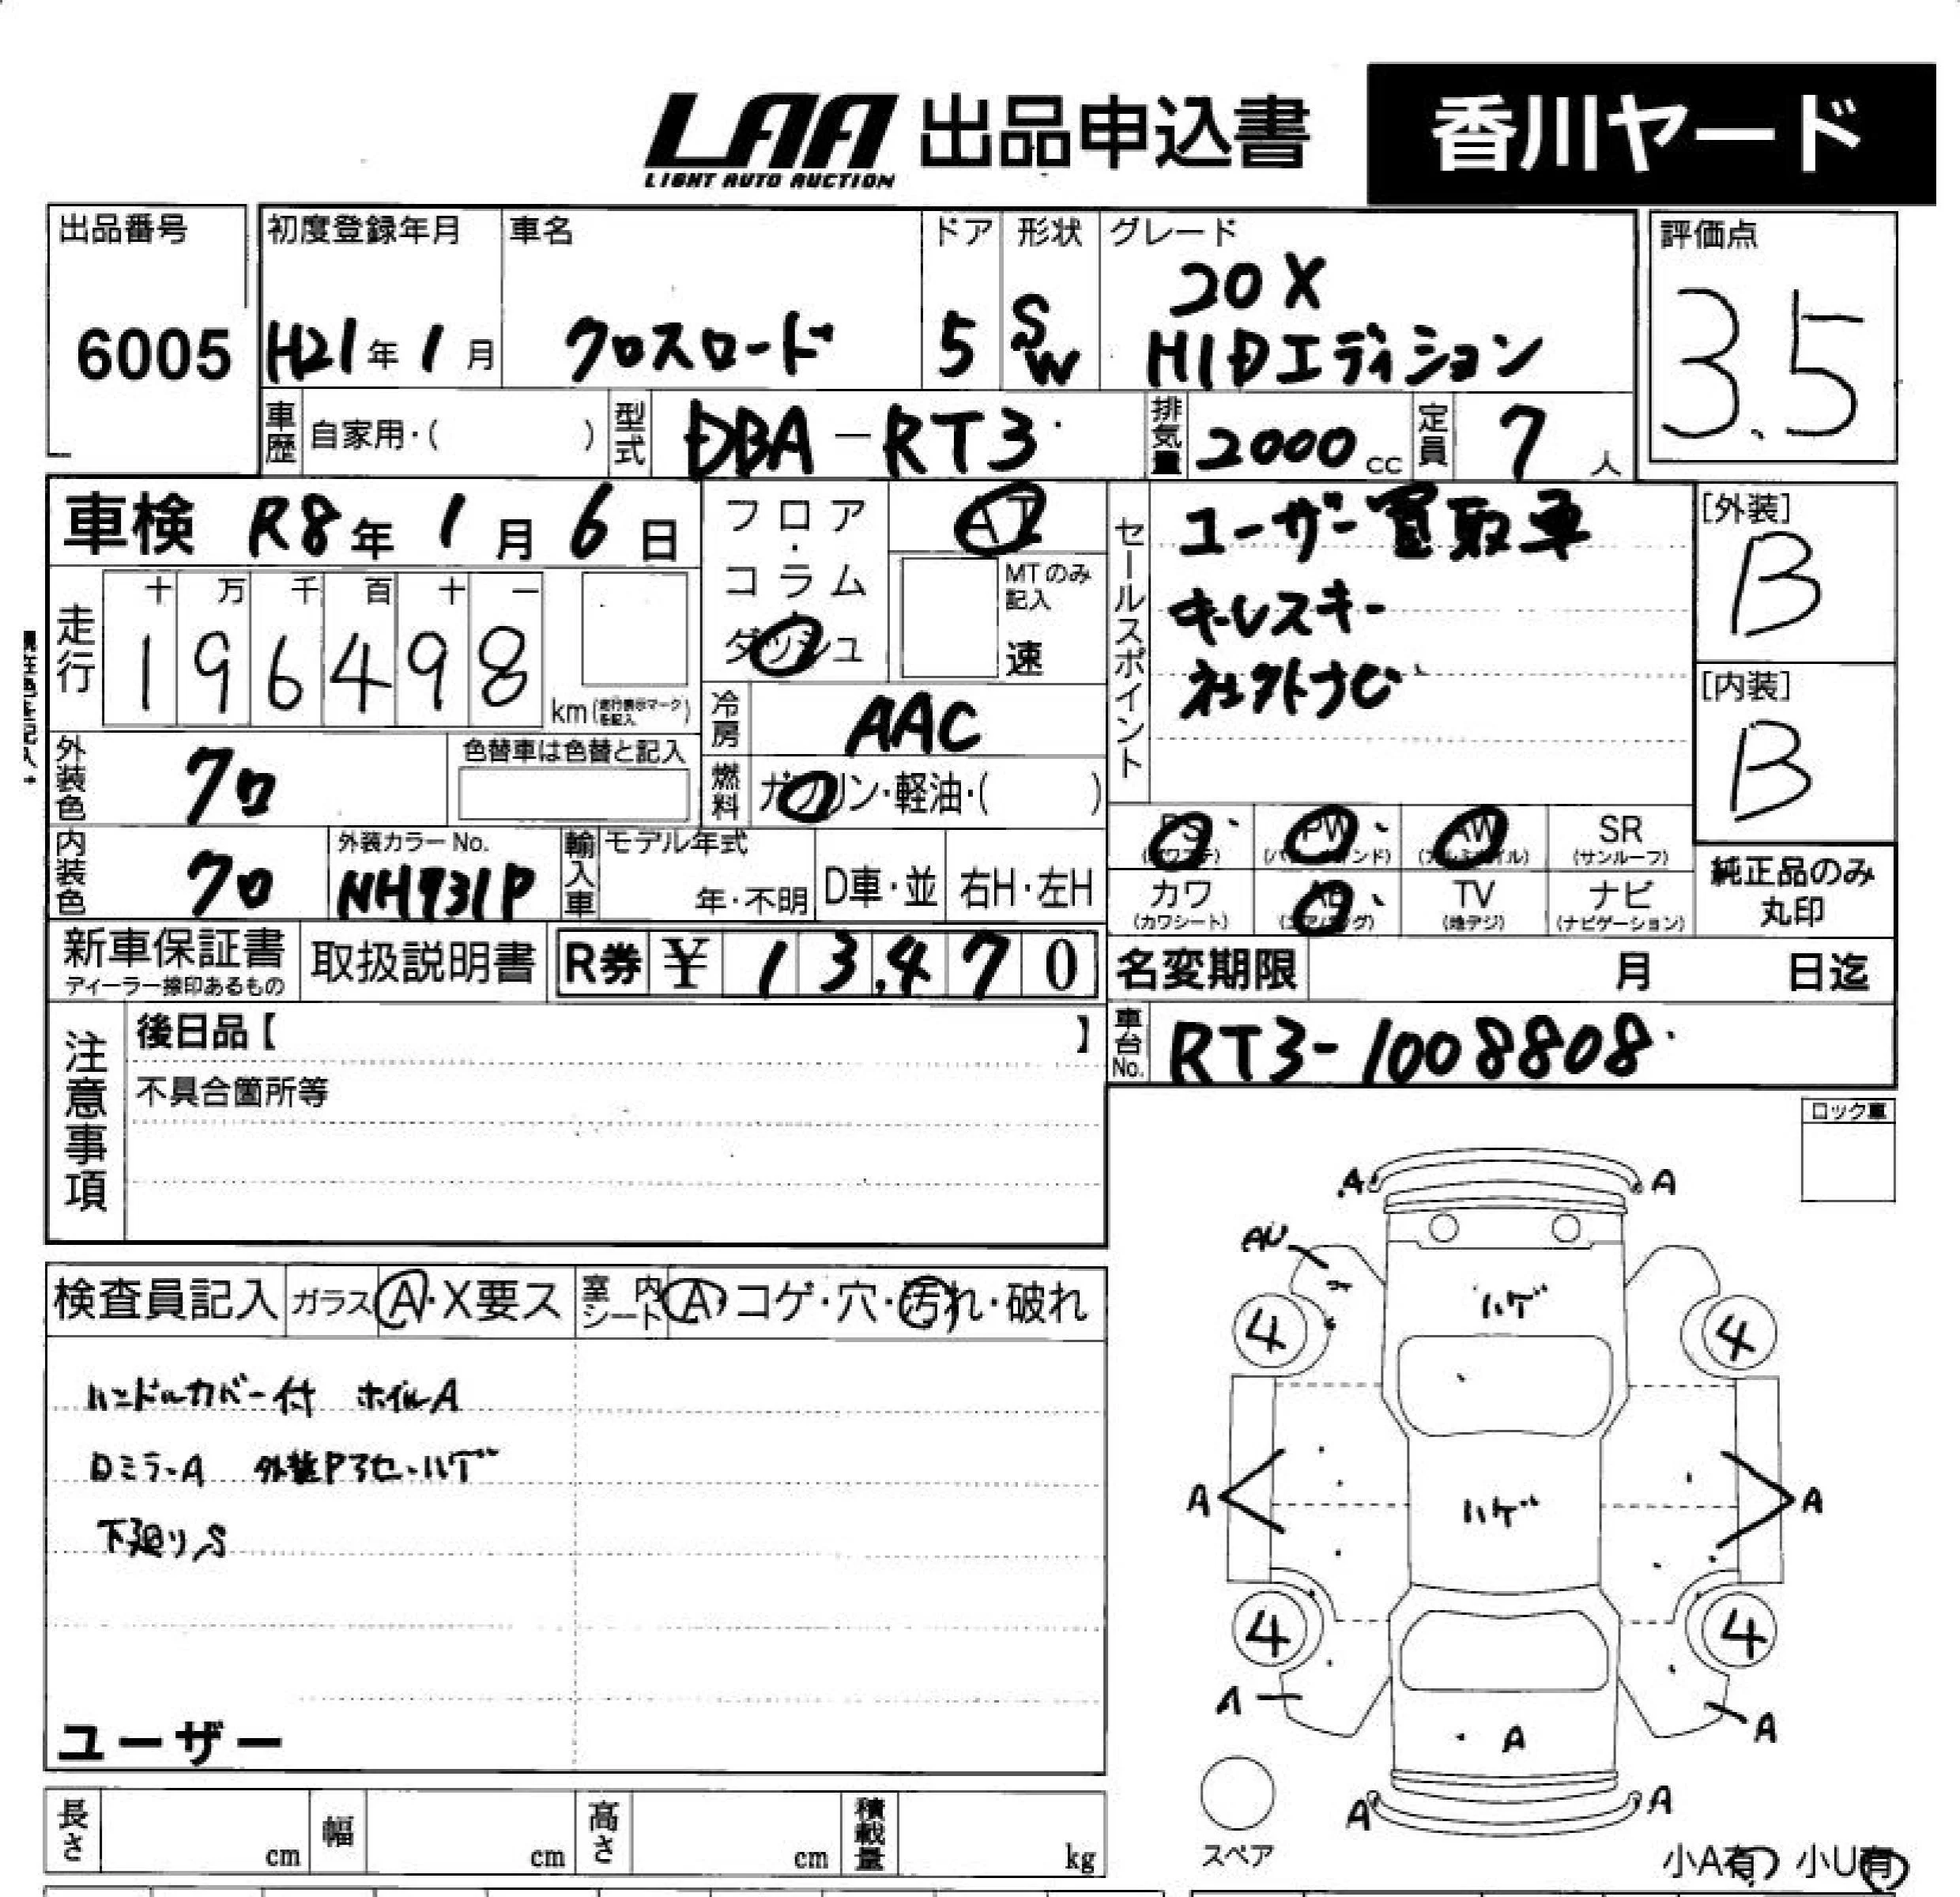 LAA 出品申込書 香川ヤード
LIGHT AUTO AUCTION
出品番号 初度登録年月 車名 ドア 形状 グレード 評価点
6005 H21年1月 クロスロード 5 SW 20X
HIDエディション 3.5
車歴 自家用・( ) 型式 DBA-RT3 排気量 2000cc 定員 7人
車検 R8年1月6日 フロア・コラム・ダッシュ AT
MTのみ記入 速
セールスポイント ユーザー買取車
キーレスキー
社外ナビ
[外装] B
[内装] B
走行 十 万 千 百 十 一
1 9 6 4 9 8 km(走行表示マークを記入)
冷房 AAC
外装色 クロ 色替車は色替と記入
燃料 ガソリン・軽油・( )
内装色 クロ 外装カラーNo. NH731P 輸入車 モデル年式 年・不明 D車・並 右H・左H
PS (パワステ) PW (パワーウインド) AW (アルミホイル) SR (サンルーフ)
カワ (カワシート) AB (エアバッグ) TV (地デジ) ナビ (ナビゲーション)
純正品のみ丸印
新車保証書 ディーラー捺印あるもの 取扱説明書 R券 ¥ 13,470 名変期限 月 日迄
車台No. RT3-1008808
注意事項 後日品【 】
不具合箇所等
ロック車
検査員記入 ガラス A・X要ス 室内シート A・コゲ・穴・汚れ・破れ
ハンドルカバー付 ホイルA
DミラーA 外装Pアセ・ハゲ
下廻りS
ユーザー
A A
AU
ハゲ
4 4
A ハゲ A
4 4
A A A
A A
スペア
小A有 小U有
長さ cm 幅 cm 高さ cm 積載量 kg